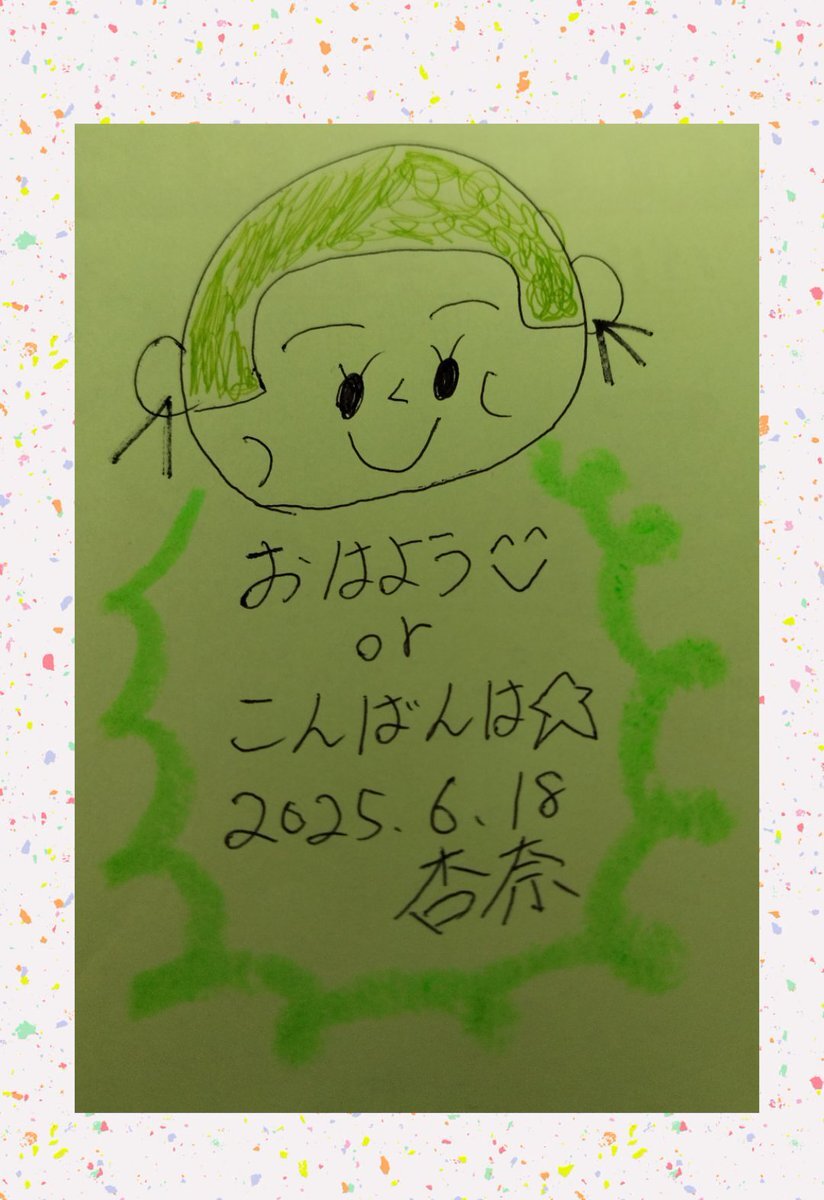 おはよう
or
こんばんは☆
2025.6.18
杏奈